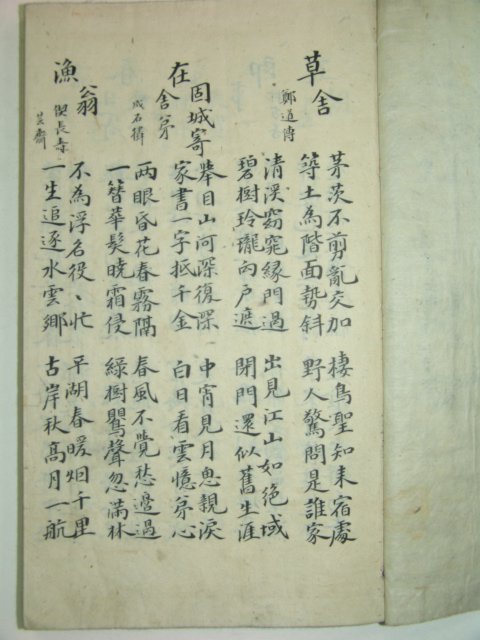 草舍 鄭道傳
茅茨不剪亂交加
等土為階面勢斜
棲鳥聖知来宿處
野人驚問是誰家
清溪窈窕緣門過
碧樹玲瓏向戶遮
出見江山如絕域
閉門還似舊生涯
在固城寄舍弟 成石璘
擧目山河深復深
家書一字抵千金
中宵見月思親淚
白日看雲憶弟心
兩眼昏花春霧隔
一簪華髮曉霜侵
春風不覺愁邊過
綠樹鶯聲忽滿林
漁翁 偰長壽 芸齋
不為浮名役丶忙
一生追逐水雲鄉
平湖春暖烟千里
古岸秋高月一航